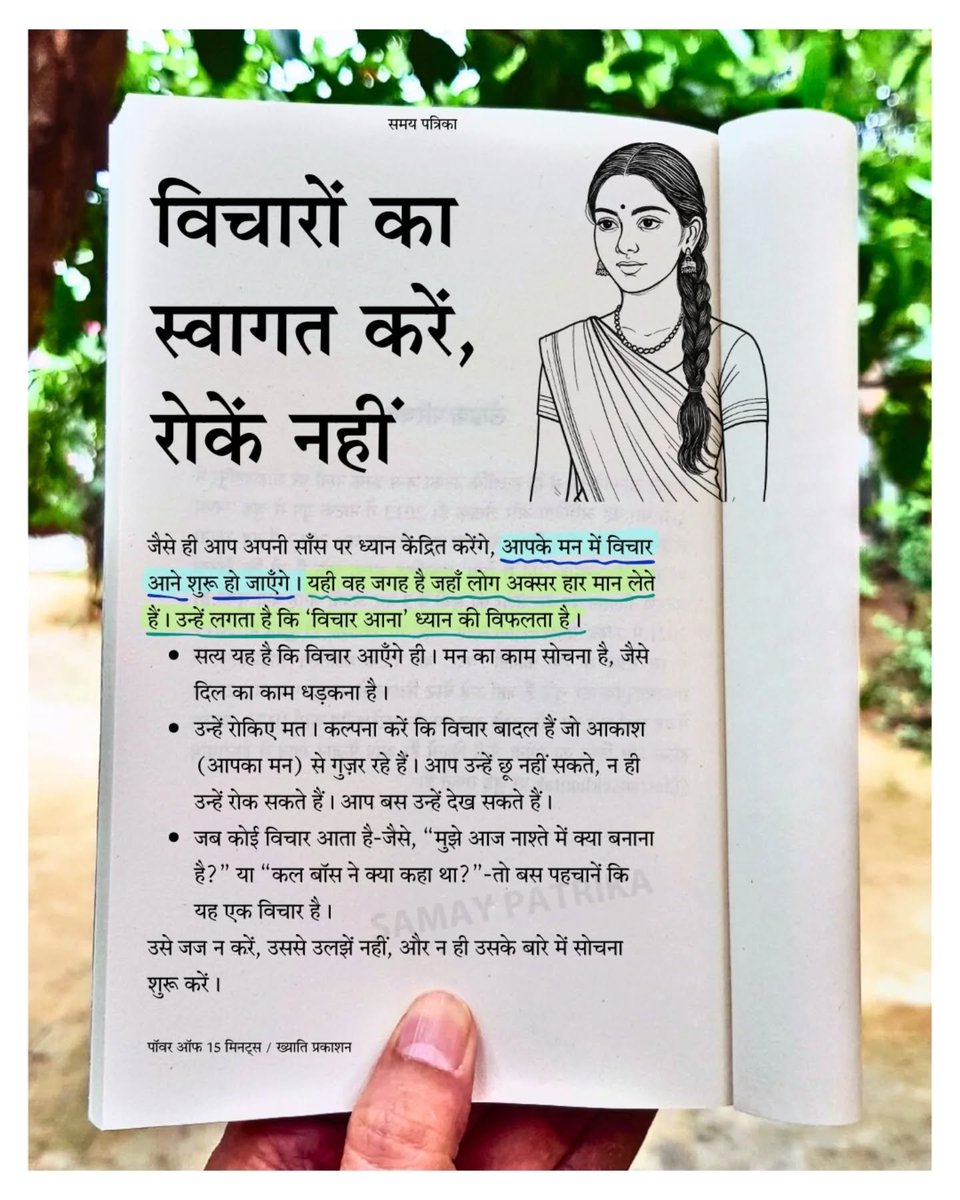 समय पत्रिका
विचारों का
स्वागत करें,
रोकें नहीं
जैसे ही आप अपनी साँस पर ध्यान केंद्रित करेंगे, आपके मन में विचार
आने शुरू हो जाएँगे। यही वह जगह है जहाँ लोग अक्सर हार मान लेते
हैं। उन्हें लगता है कि ‘विचार आना’ ध्यान की विफलता है।
• सत्य यह है कि विचार आएँगे ही। मन का काम सोचना है, जैसे
दिल का काम धड़कना है।
• उन्हें रोकिए मत। कल्पना करें कि विचार बादल हैं जो आकाश
(आपका मन) से गुज़र रहे हैं। आप उन्हें छू नहीं सकते, न ही
उन्हें रोक सकते हैं। आप बस उन्हें देख सकते हैं।
• जब कोई विचार आता है-जैसे, “मुझे आज नाश्ते में क्या बनाना
है?” या “कल बॉस ने क्या कहा था?”-तो बस पहचानें कि
यह एक विचार है।
SAMAY PATRIKA
उसे जज न करें, उससे उलझें नहीं, और न ही उसके बारे में सोचना
शुरू करें।
पॉवर ऑफ 15 मिनट्स / ख्याति प्रकाशन